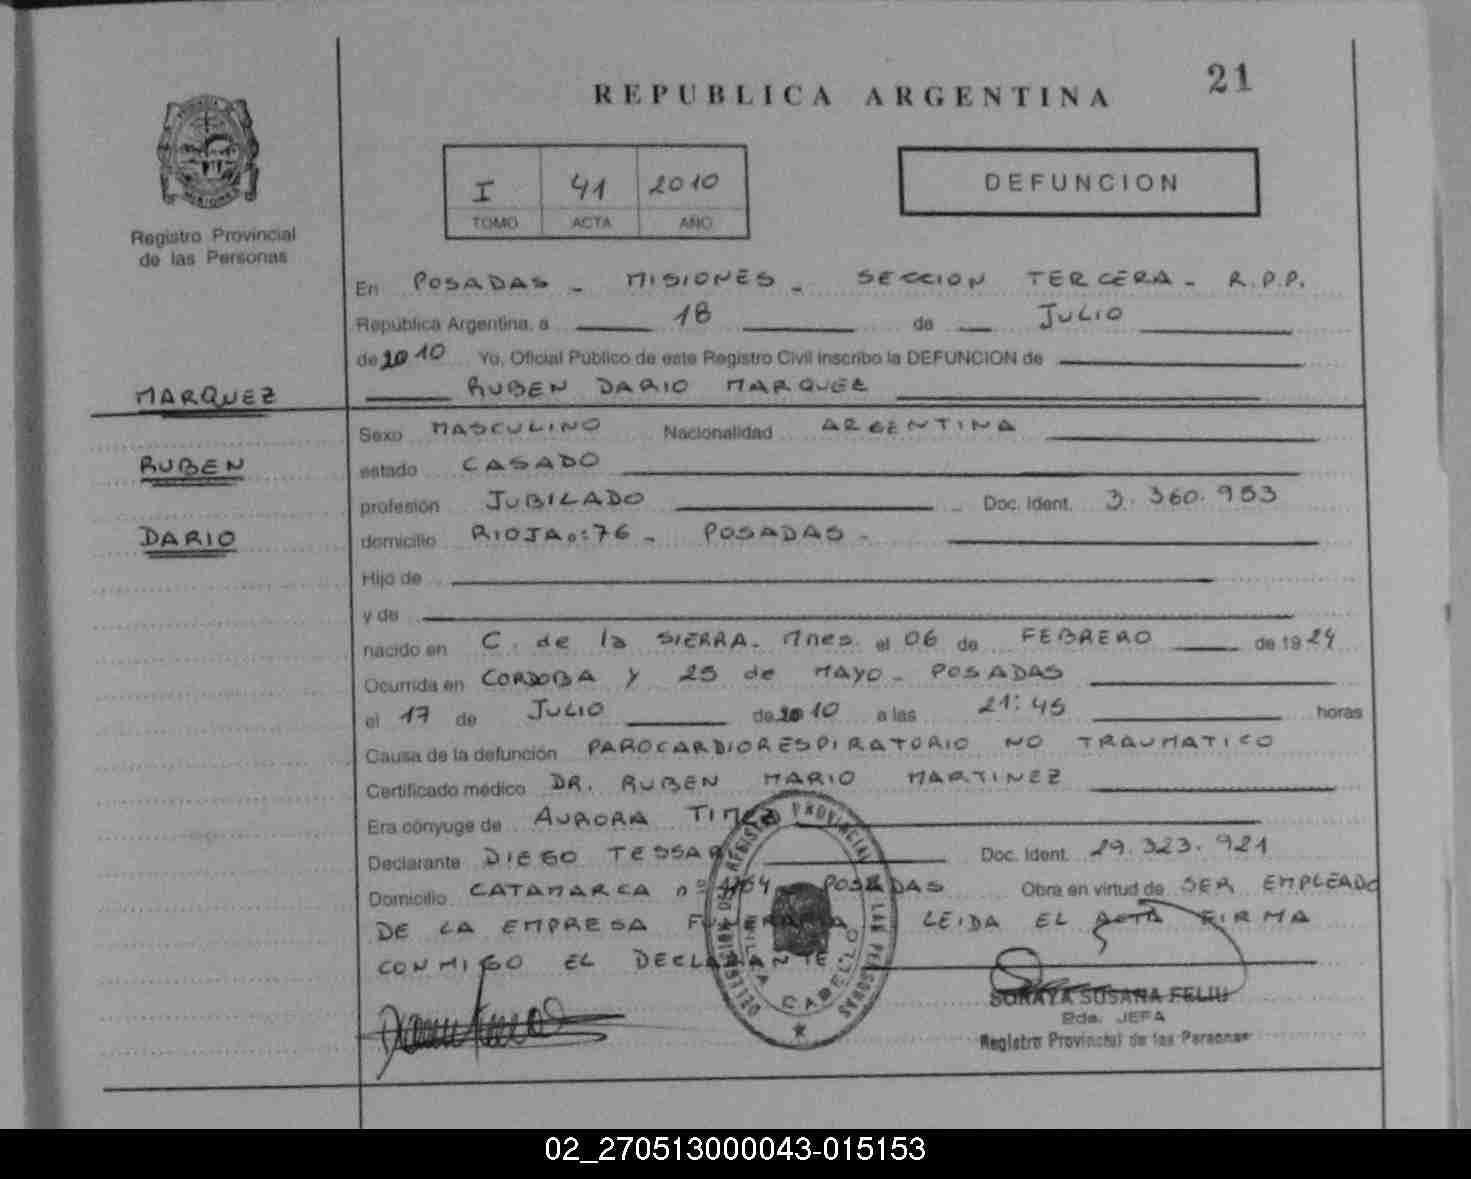 21
REPUBLICA ARGENTINA
I 41 2010
TOMO ACTA AÑO
DEFUNCION
Registro Provincial
de las Personas
En POSADAS - MISIONES - SECCION TERCERA - R.P.P.
República Argentina, a 18 de JULIO
de 2010 Yo, Oficial Público de este Registro Civil inscribo la DEFUNCION de
RUBEN DARIO MARQUEZ
MARQUEZ
RUBEN
DARIO
Sexo MASCULINO Nacionalidad ARGENTINA
estado CASADO
profesión JUBILADO Doc. Ident. 3.360.953
domicilio RIOJA nº:76 - POSADAS -
Hijo de
y de
nacido en C. de la SIERRA - Mnes. el 06 de FEBRERO de 1924
Ocurrida en CORDOBA Y 25 de MAYO - POSADAS
el 17 de JULIO de 2010 a las 21:45 horas
Causa de la defunción PAROCARDIORESPIRATORIO NO TRAUMATICO
Certificado médico DR. RUBEN MARIO MARTINEZ
Era cónyuge de AURORA
Declarante DIEGO TESSARI Doc. Ident. 29.323.921
Domicilio CATAMARCA nº POSADAS Obra en virtud de SER EMPLEADO
DE LA EMPRESA FUNERARIA LEIDA EL ACTA FIRMA
CONMIGO EL DECLARANTE
DELEGACION DEL REGISTRO PROVINCIAL DE LAS PERSONAS
VILLA CABELLO
SORAYA SUSANA FELIU
2da. JEFA
Registro Provincial de las Personas
02_270513000043-015153